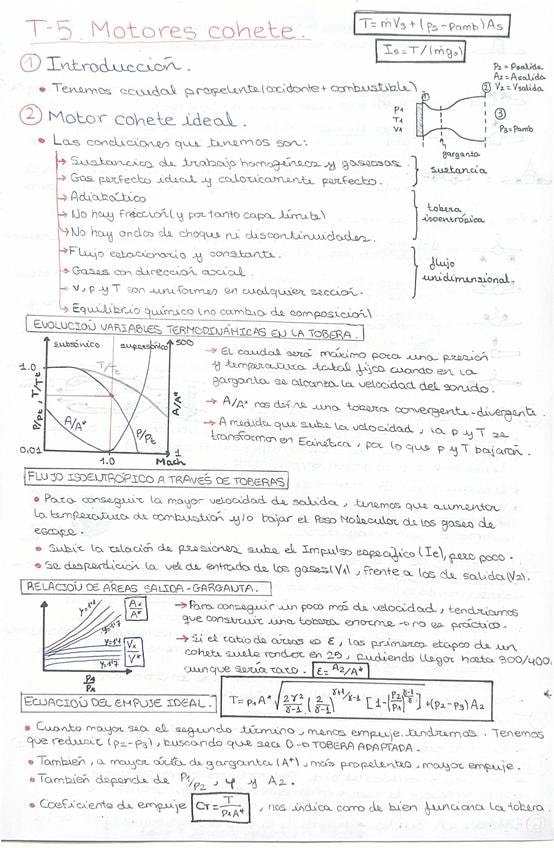 T-5. Motores cohete.
T = ṁVs + (ps - pamb)As
Is = T/(ṁg₀)
① Introducción.
• Tenemos caudal propelente (oxidante + combustible)
② Motor cohete ideal.
P2 = Psalida
A2 = Asalida
V2 = Vsalida
①
②
③
P1
T1
V1
P3 = Pamb
garganta
• Las condiciones que tenemos son:
→ Sustancias de trabajo homogéneas y gaseosas.
→ Gas perfecto ideal y calóricamente perfecto.
sustancia
→ Adiabático
→ No hay fricción (y por tanto capa límite)
→ No hay ondas de choque ni discontinuidades.
tobera isoentrópica
→ Flujo estacionario y constante.
→ Gases con dirección axial.
→ v, p y T son uniformes en cualquier sección.
flujo unidimensional.
→ Equilibrio químico (no cambia de composición)
EVOLUCIÓN VARIABLES TERMODINÁMICAS EN LA TOBERA.
subsónico
supersónico
500
1.0
T/Tt
P/Pt, T/Tt
A/A*
A/A*
P/Pt
0.01
1.0
Mach
1
→ El caudal será máximo para una presión
y temperatura total fijas cuando en la
garganta se alcanza la velocidad del sonido.
→ A/A* nos define una tobera convergente-divergente.
→ A medida que sube la velocidad, la p y T se
transforman en Ecinética, por lo que p y T bajarán.
FLUJO ISOENTRÓPICO A TRAVÉS DE TOBERAS
• Para conseguir la mayor velocidad de salida, tenemos que aumentar
la temperatura de combustión y/o bajar el Peso Molecular de los gases de
escape.
• Subir la relación de presiones sube el Impulso específico (Ie), pero poco.
• Se desperdicia la vel de entrada de los gases (V1), frente a los de salida (V2).
RELACIÓN DE ÁREAS SALIDA-GARGANTA.
Ax
A*
Vx
V*
→ Para conseguir un poco más de velocidad, tendríamos
que construir una tobera enorme → no es práctico.
→ Si el ratio de áreas es ε, las primeras etapas de un
cohete suele rondar en 25, pudiendo llegar hasta 300/400.
aunque sería raro. ε = A2/A*
ECUACIÓN DEL EMPUJE IDEAL.
T = p1A* √(2γ²/(γ-1) (2/(γ-1))^(γ+1/γ-1) [1-(p2/p1)^(γ-1/γ)]) + (p2-p3)A2
• Cuanto mayor sea el segundo término, menos empuje tendremos. Tenemos
que reducir (p2-p3), buscando que sea 0 → TOBERA ADAPTADA.
• También, a mayor área de garganta (A*), más propelentes, mayor empuje.
• También depende de P1/P2, γ y A2.
• Coeficiente de empuje CT = T/(P1A*), nos indica como de bien funciona la tobera.